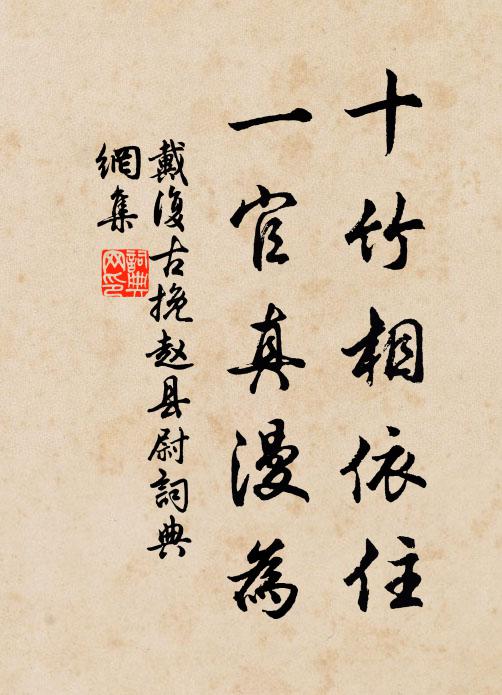 十竹相依住
一官真漫為
戴復古挽赵县尉詞典
網集
詞典
网印